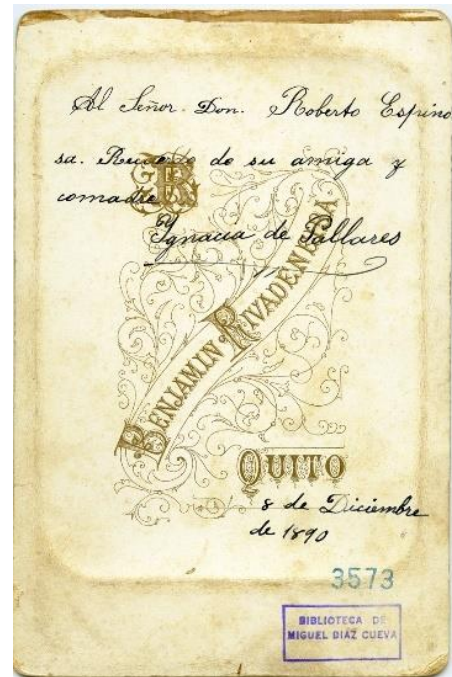 Al Señor. Don. Roberto Espino
sa. Recuerdo de su amiga y
comadre
Ignacia de Pallares
BR
BENJAMIN RIVADENEIRA
QUITO
8 de Diciembre
de 1890
3573
BIBLIOTECA DE
MIGUEL DIAZ CUEVA